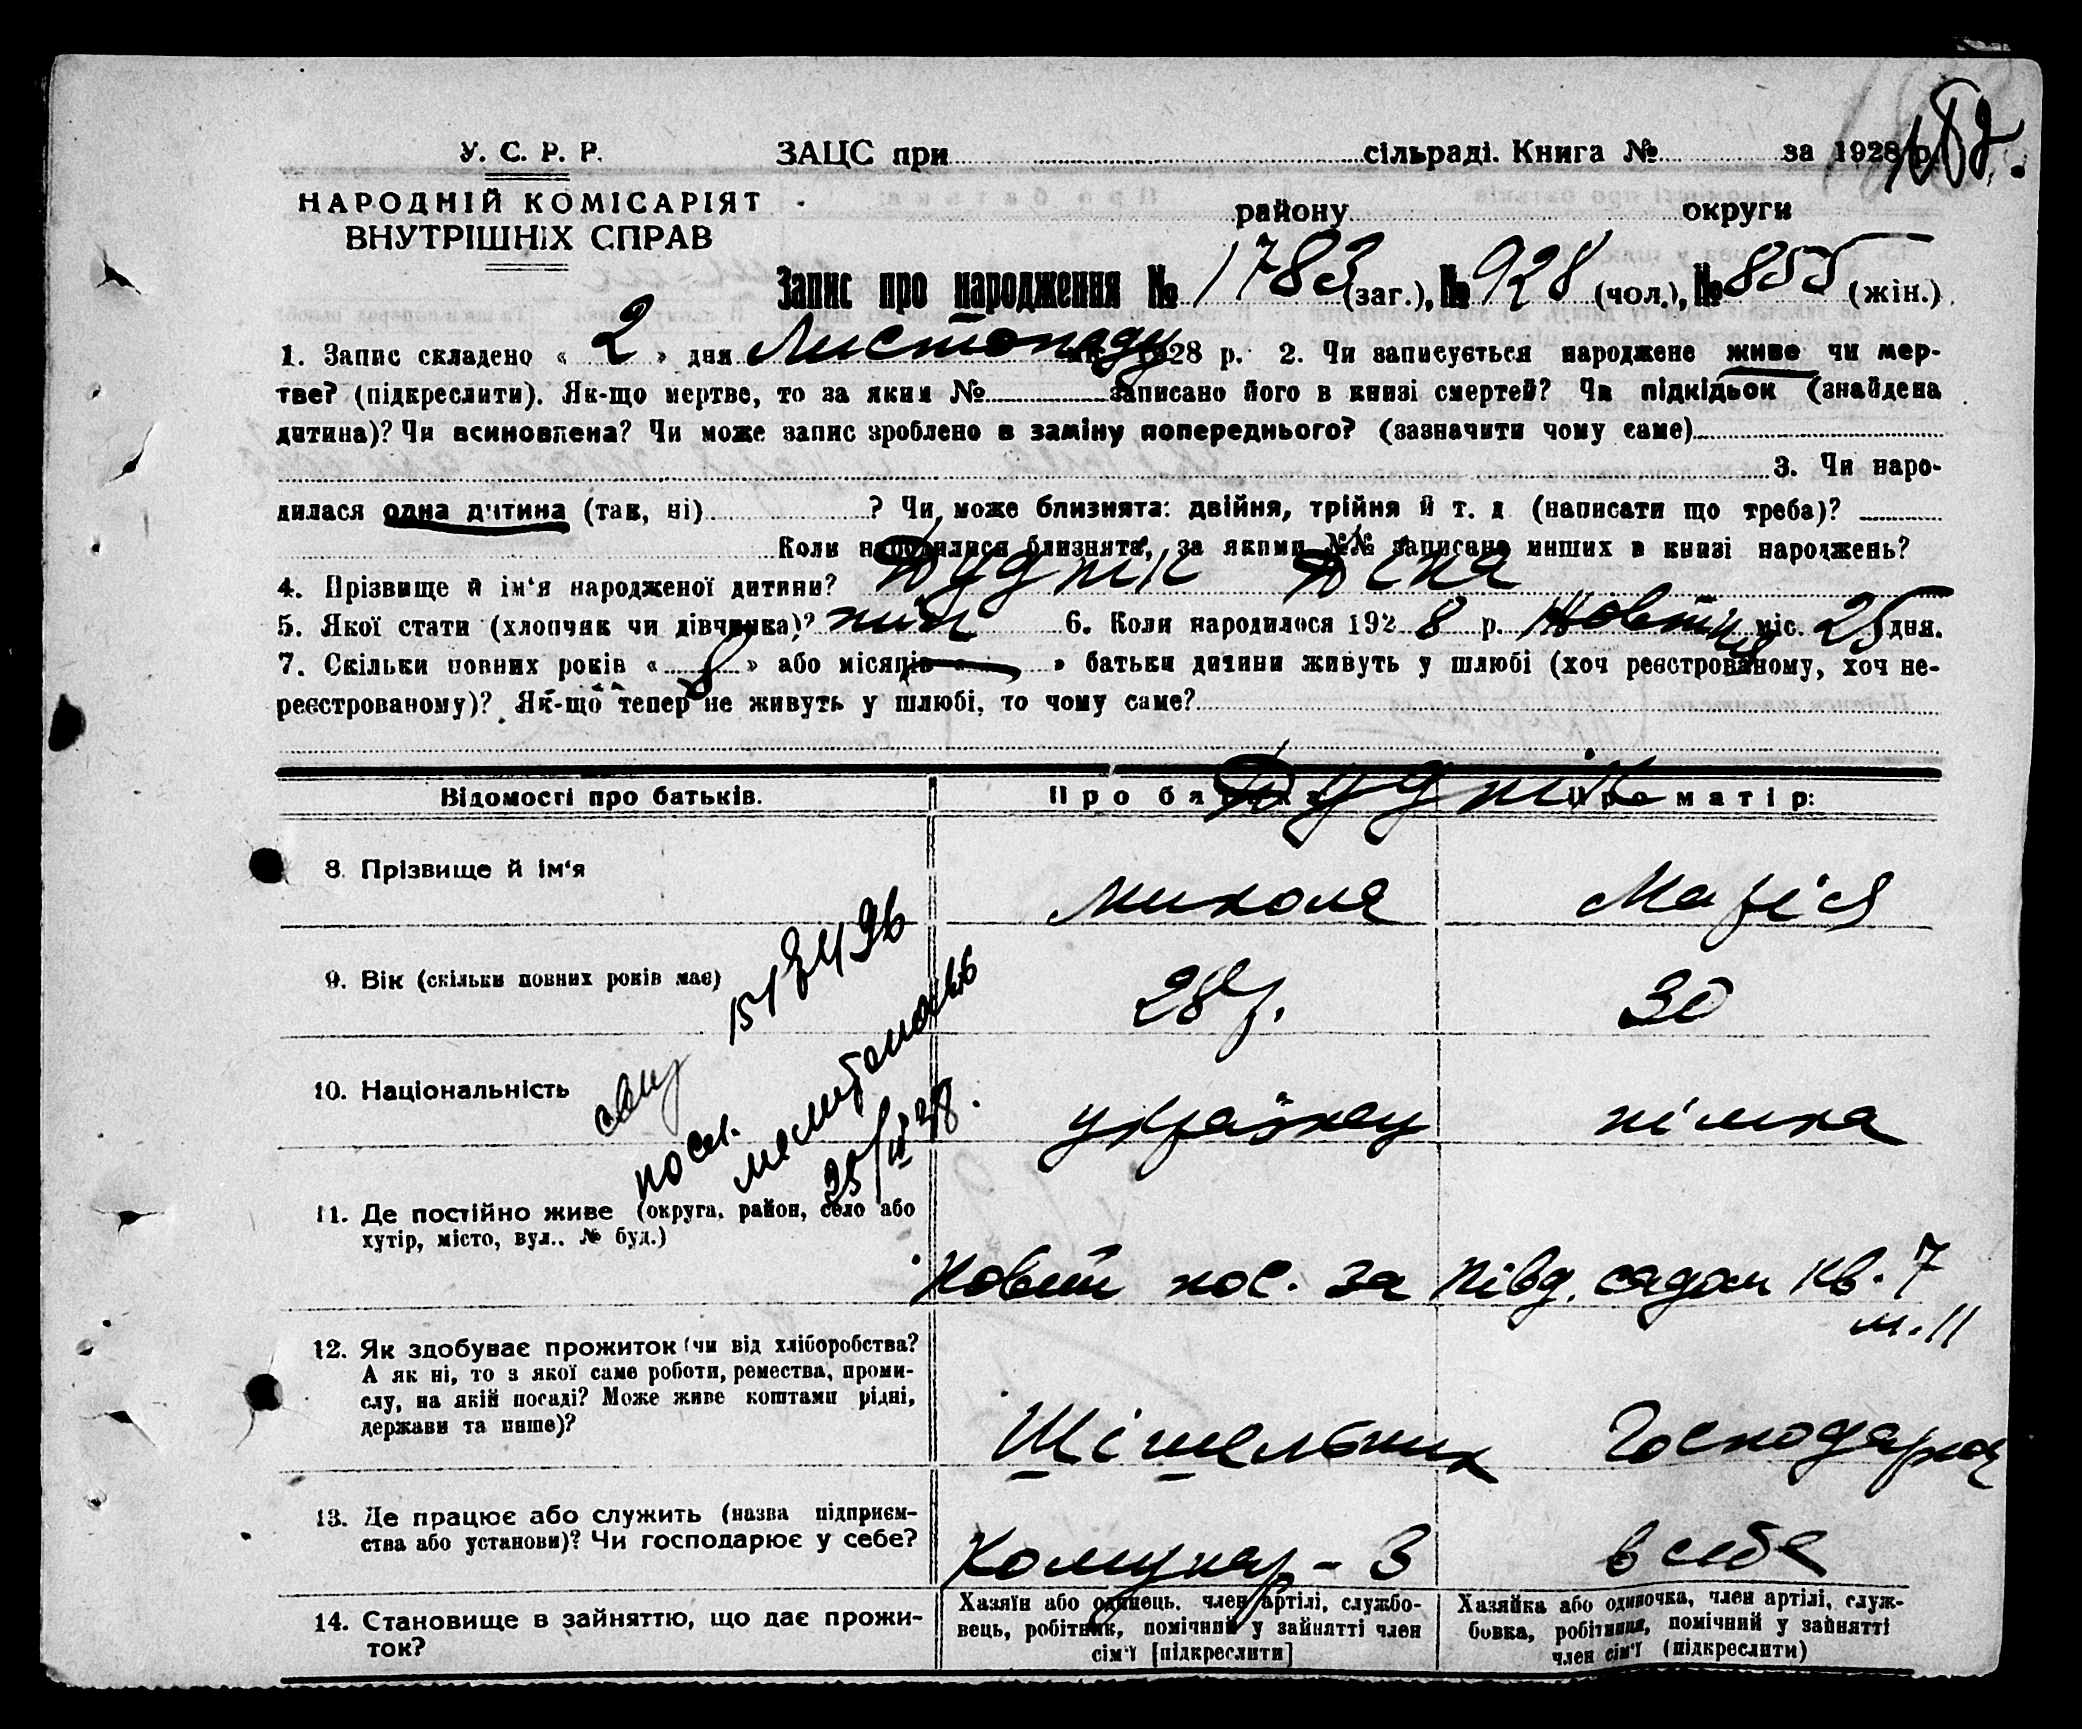 182.
У. С. Р. Р.
ЗАЦС при сільраді. Книга № за 1928 р.
НАРОДНІЙ КОМІСАРІЯТ
ВНУТРІШНІХ СПРАВ
району округи
Запис про народження № 1783 (заг.), № 928 (чол.), № 855 (жін.)
1. Запис складено « 2 » дня Листопаду 1928 р. 2. Чи записується народжене живе чи мер-
тве? (підкреслити). Як-що мертве, то за яким № записано його в книзі смертей? Чи підкідьок (знайдена
дитина)? Чи всиновлена? Чи може запис зроблено в заміну попереднього? (зазначити чому саме)
3. Чи наро-
дилася одна дитина (так, ні) ? Чи може близнята: двійня, трійня й т. д. (написати що треба)?
Коли народилися близнята, за якими №№ записано инших в книзі народжень?
4. Прізвище й ім'я народженої дитини? Дуднік
5. Якої стати (хлопчик чи дівчинка)? жін 6. Коли народилося 192 8 р. Жовтня міс. 25 дня.
7. Скільки повних років « 8 » або місяців « » батьки дитини живуть у шлюбі (хоч реєстрованому, хоч не-
реєстрованому)? Як-що тепер не живуть у шлюбі, то чому саме?
Відомості про батьків. Про батька: Про матір:
Дуднік
8. Прізвище й ім'я Микола Марія
9. Вік (скільки повних років має) 28 р. 30
10. Національність українец німка
11. Де постійно живе (округа, район, село або
хутір, місто, вул.. № буд.)
Новий пос. за півд. садом кв. 7
п. 11
12. Як здобуває прожиток (чи від хліборобства?
А як ні, то з якої саме роботи, ремества, проми-
слу, на якій посаді? Може живе коштами рідні,
держави та инше)?
Шішельник Господарка
13. Де працює або служить (назва підприєм-
ства або установи)? Чи господарює у себе?
Комунар-З в себе
14. Становище в зайняттю, що дає прожи-
ток?
Хазяїн або одинець, член артілі, службо-
вець, робітник, помічний у зайнятті член
сім'ї [підкреслити]
Хазяйка або одиночка, член артілі, служ-
бовка, робітниця, помічний у зайнятті
член сім'ї (підкреслити)